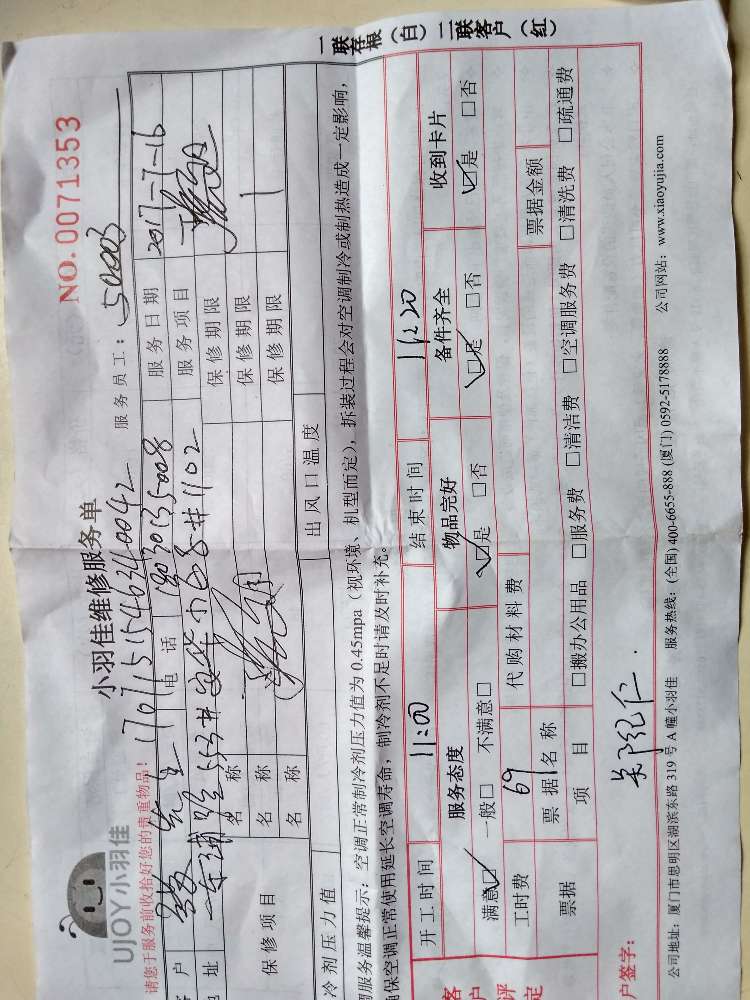 一联存根（白）二联客户（红）
NO. 0071353
UJOY小羽佳
小羽佳维修服务单
请您于服务前收拾好您的贵重物品！
服务员工：
户 先生 电话 18030135008 服务日期 2017-7-16
址 服务项目
保修项目
名称 保修期限
名称 保修期限
名称 保修期限
冷剂压力值 出风口温度
调服务温馨提示：空调正常制冷剂压力值为 0.45mpa（视环境、机型而定），拆装过程会对空调制冷或制热造成一定影响，
确保空调正常使用延长空调寿命，制冷剂不足时请及时补充。
开工时间 11:00 结束时间 11:20
客户评定
服务态度 物品完好 备件齐全 收到卡片
满意☑ 一般□ 不满意□ ☑是 □否 ☑是 □否 ☑是 □否
工时费 69 代购材料费
票据 票据名称 票据金额
项目 □搬办公用品 □服务费 □清洁费 □空调服务费 □清洗费 □疏通费
户签字：
公司地址：厦门市思明区湖滨东路 319 号 A 幢小羽佳 服务热线：(全国) 400-6655-888 (厦门) 0592-5178888 公司网站：www.xiaoyujia.com